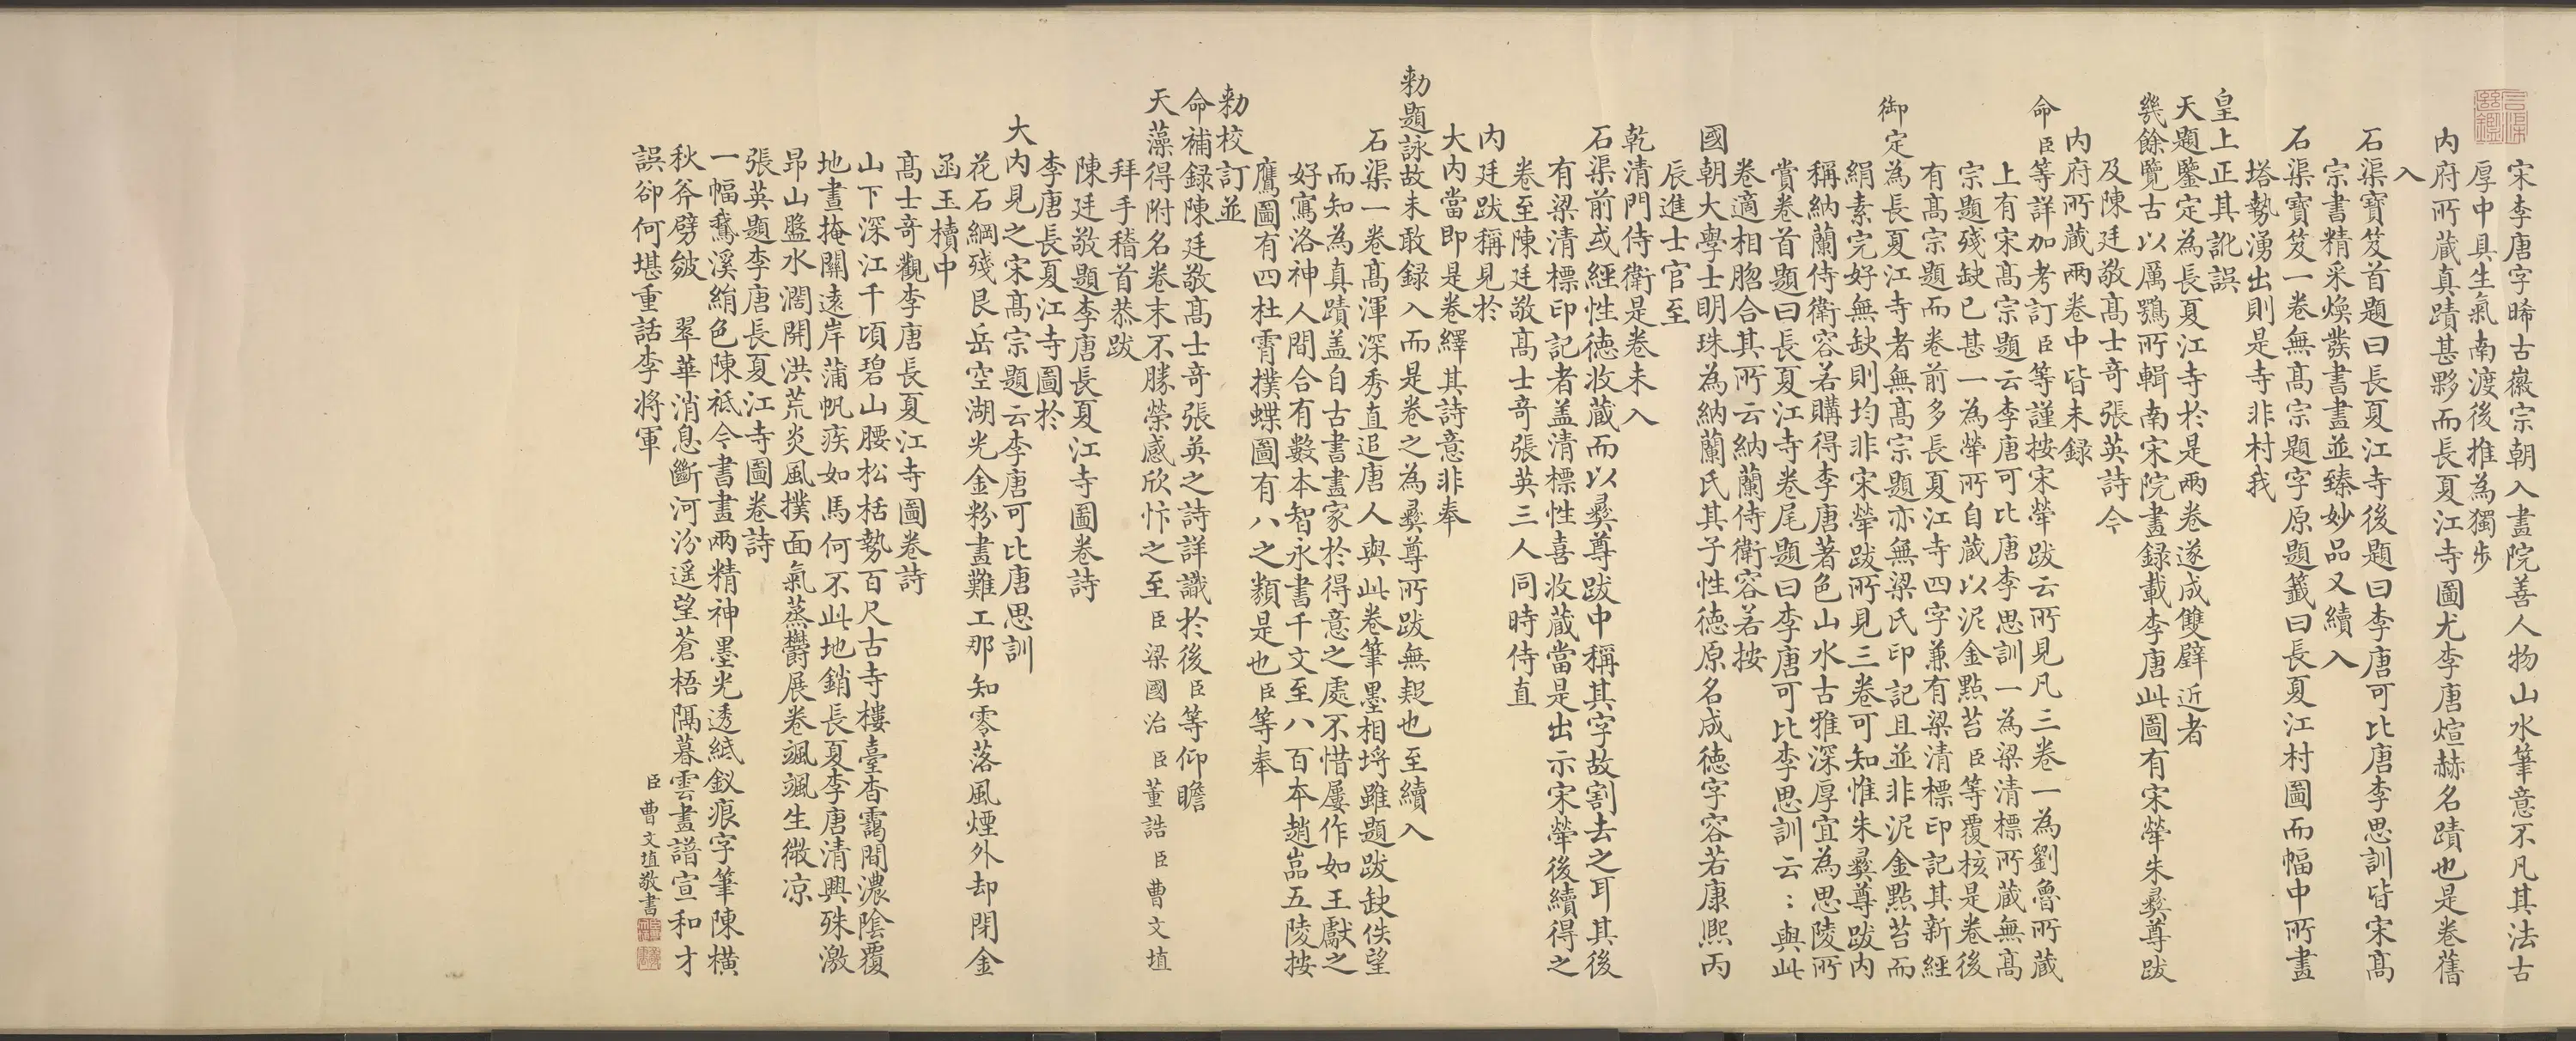 宋李唐字晞古徽宗朝入畫院善人物山水筆意不凡其法古
厚中具生氣南渡後推為獨步
內府所藏真蹟甚夥而長夏江寺圖尤李唐煊赫名蹟也是卷舊
入
石渠寶笈首題曰長夏江寺後題曰李唐可比唐李思訓皆宋高
宗書精采煥發書畫並臻妙品又續入
石渠寶笈一卷無高宗題字原題籤曰長夏江村圖而幅中所畫
塔勢湧出則是寺非村我
皇上正其訛誤
天題鑒定為長夏江寺於是兩卷遂成雙璧近者
幾餘覽古以厲鶚所輯南宋院畫錄載李唐此圖有宋犖朱彝尊跋
及陳廷敬高士奇張英詩今
內府所藏兩卷中皆未錄
命臣等詳加考訂臣等謹按宋犖跋云所見凡三卷一為劉魯所藏
上有宋高宗題云李唐可比唐李思訓一為梁清標所藏無高
宗題殘缺已甚一為犖所自藏以泥金點苔臣等覆核是卷後
有高宗題而卷前多長夏江寺四字兼有梁清標印記其新經
御定為長夏江寺者無高宗題亦無梁氏印記且並非泥金點苔而
絹素完好無缺則均非宋犖跋所見三卷可知惟朱彝尊跋內
稱納蘭侍衛容若購得李唐著色山水古雅深厚宜為思陵所
賞卷首題曰長夏江寺卷尾題曰李唐可比李思訓云：與此
卷適相脗合其所云納蘭侍衛容若按
國朝大學士明珠為納蘭氏其子性德原名成德字容若康熙丙
辰進士官至
乾清門侍衛是卷未入
石渠前或經性德收藏而以彝尊跋中稱其字故割去之耳其後
有梁清標印記者蓋清標性喜收藏當是出示宋犖後續得之
卷至陳廷敬高士奇張英三人同時侍直
內廷跋稱見於
大內當即是卷繹其詩意非奉
勅題詠故未敢錄入而是卷之為彝尊所跋無疑也至續入
石渠一卷高渾深秀直追唐人與此卷筆墨相埒雖題跋缺佚望
而知為真蹟蓋自古書畫家於得意之處不惜屢作如王獻之
好寫洛神人間合有數本智永書千文至八百本趙嵓五陵按
鷹圖有四杜霄撲蝶圖有八之類是也臣等奉
勅校訂並
命補錄陳廷敬高士奇張英之詩詳識於後臣等仰瞻
天藻得附名卷末不勝榮感欣忭之至臣梁國治臣董誥臣曹文埴
拜手稽首恭跋
陳廷敬題李唐長夏江寺圖卷詩
李唐長夏江寺圖於
大內見之宋高宗題云李唐可比唐思訓
花石綱殘艮岳空湖光金粉畫難工那知零落風煙外却閉金
函玉櫝中
高士奇觀李唐長夏江寺圖卷詩
山下深江千頃碧山腰松栝勢百尺古寺樓臺杳靄間濃陰覆
地晝掩關遠岸蒲帆疾如馬何不此地銷長夏李唐清興殊激
昂山盤水濶開洪荒炎風撲面氣蒸欝展卷颯颯生微凉
張英題李唐長夏江寺圖卷詩
一幅鵞溪絹色陳祇今書畫兩精神墨光透紙釵痕字筆陳橫
秋斧劈皴　翠華消息斷河汾遥望蒼梧隔暮雲畫譜宣和才
誤卻何堪重話李將軍
臣曹文埴敬書